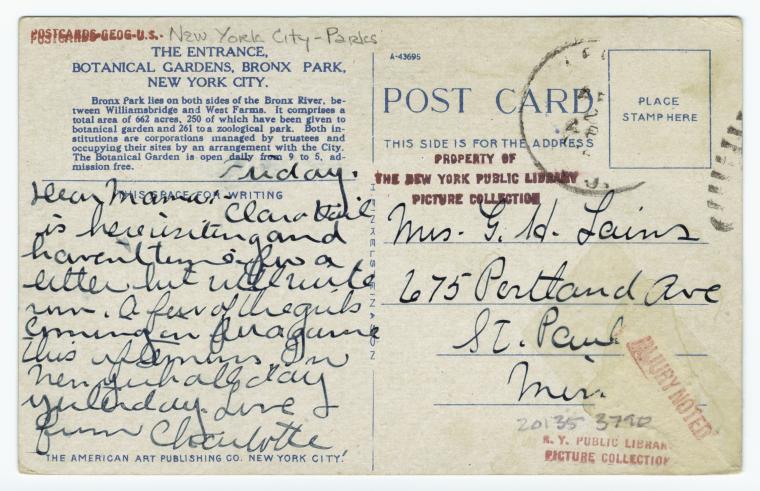 POSTCARDS-GEOG-U.S.- New York City-Parks
THE ENTRANCE,
BOTANICAL GARDENS, BRONX PARK,
NEW YORK CITY.
Bronx Park lies on both sides of the Bronx River, be-
tween Williamsbridge and West Farms. It comprises a
total area of 662 acres, 250 of which have been given to
botanical garden and 261 to zoological park. Both in-
stitutions are corporations managed by trustees and
occupying their sites by an arrangement with the City.
The Botanical Garden is open daily from 9 to 5, ad-
mission free.
Friday.
THIS SPACE FOR WRITING
Dear Mama-
Clara
is here visiting and
haven't time for a
letter but will write
soon. A few of the girls
coming in for a game
this afternoon. In
New York all day
yesterday. Love
from Charlotte
THE AMERICAN ART PUBLISHING CO. NEW YORK CITY.
H. FINKELSTEIN & SON
A-43695
POST CARD
THIS SIDE IS FOR THE ADDRESS
PLACE
STAMP HERE
PROPERTY OF
THE NEW YORK PUBLIC LIBRARY
PICTURE COLLECTION
Mrs. G. H.
675 Portland Ave
St. Paul
Min.
INJURY NOTED
20135 3790
N. Y. PUBLIC LIBRARY
PICTURE COLLECTION